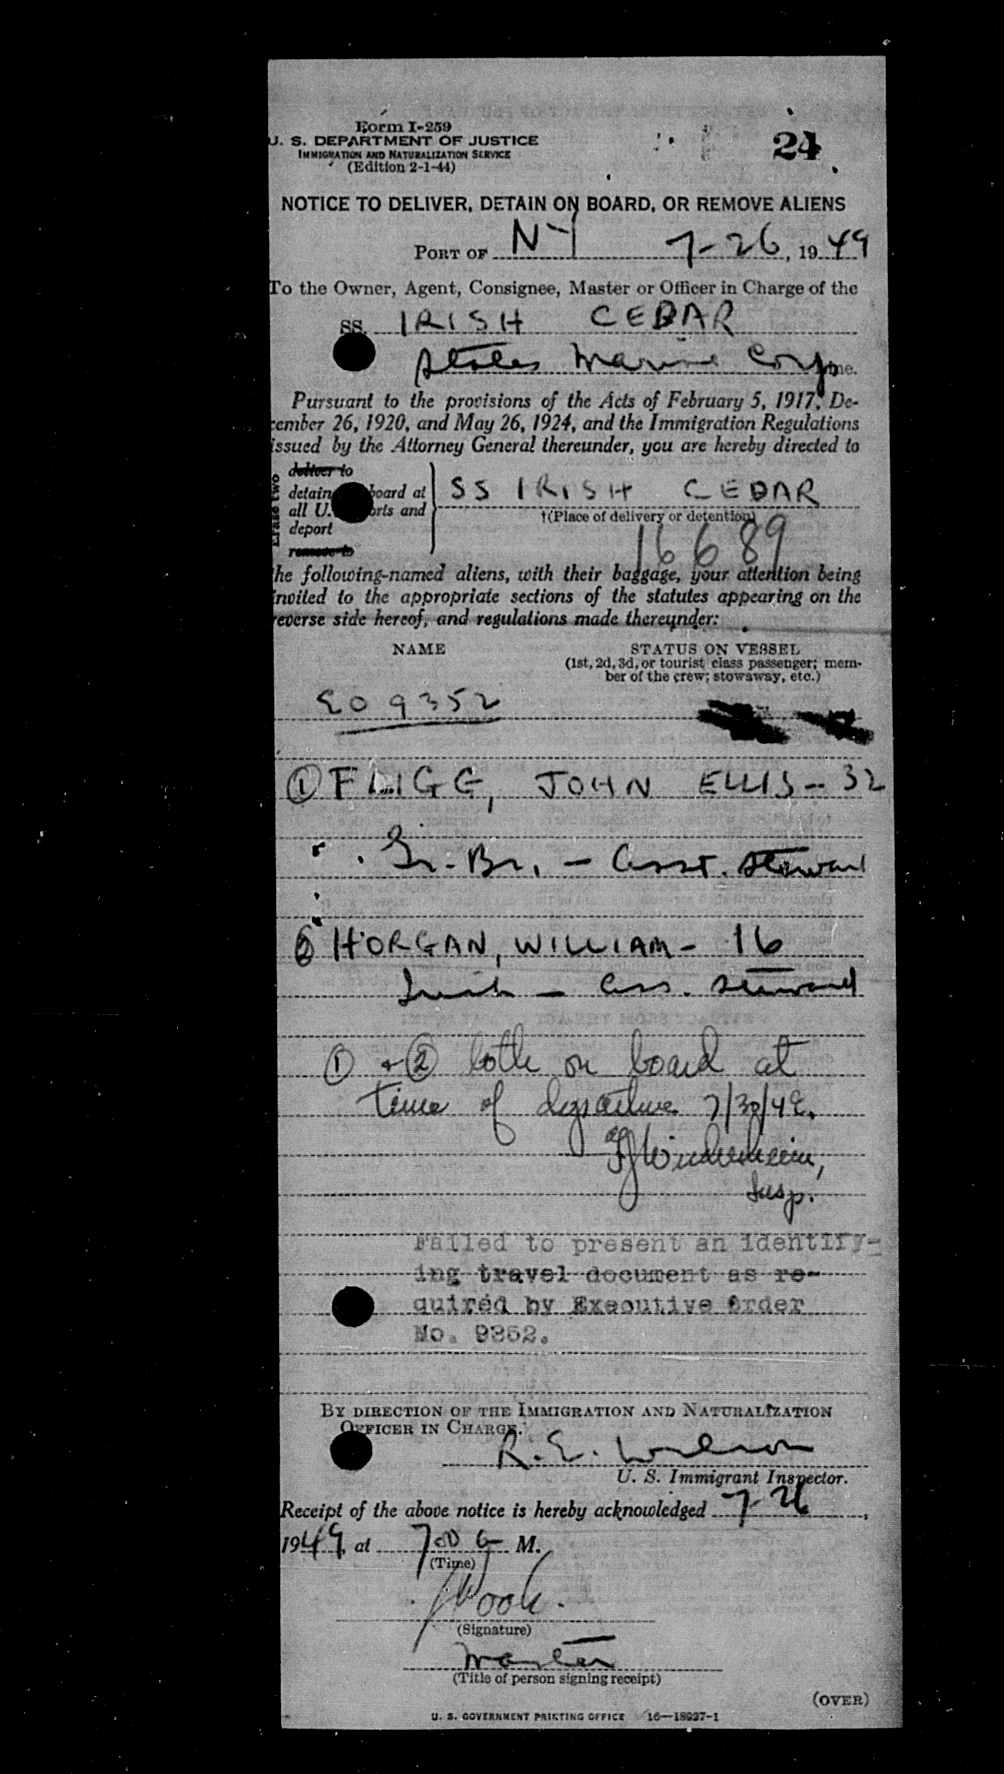 Form I-259
U. S. DEPARTMENT OF JUSTICE
IMMIGRATION AND NATURALIZATION SERVICE
(Edition 2-1-44)
24
NOTICE TO DELIVER, DETAIN ON BOARD, OR REMOVE ALIENS
PORT OF NY 7-26, 1949
To the Owner, Agent, Consignee, Master or Officer in Charge of the
SS. IRISH CEDAR
States Marine Corp ne.
Pursuant to the provisions of the Acts of February 5, 1917, De-
cember 26, 1920, and May 26, 1924, and the Immigration Regulations
issued by the Attorney General thereunder, you are hereby directed to
deliver to
detain board at
all U. rts and
deport
remove to
Erase two
SS IRISH CEDAR
†(Place of delivery or detention)
16689
the following-named aliens, with their baggage, your attention being
invited to the appropriate sections of the statutes appearing on the
reverse side hereof, and regulations made thereunder:
NAME STATUS ON VESSEL
(1st, 2d, 3d, or tourist class passenger; mem-
ber of the crew; stowaway, etc.)
EO 9352
① FLIGG, JOHN ELLIS -- 32
Gr. Br. - Asst. Steward
② HORGAN, WILLIAM - 16
Irish - Ass. Steward
① + ② both on board at
time of departure 7/30/49.
Insp.
Failed to present an identify-
ing travel document as re-
quired by Executive Order
No. 9352.
BY DIRECTION OF THE IMMIGRATION AND NATURALIZATION
OFFICER IN CHARGE.
R. E. Wilson
U. S. Immigrant Inspector.
Receipt of the above notice is hereby acknowledged 7-26,
1949, at 700 M.
(Time)
(Signature)
Master
(Title of person signing receipt)
(OVER)
U. S. GOVERNMENT PRINTING OFFICE 16—18937-1